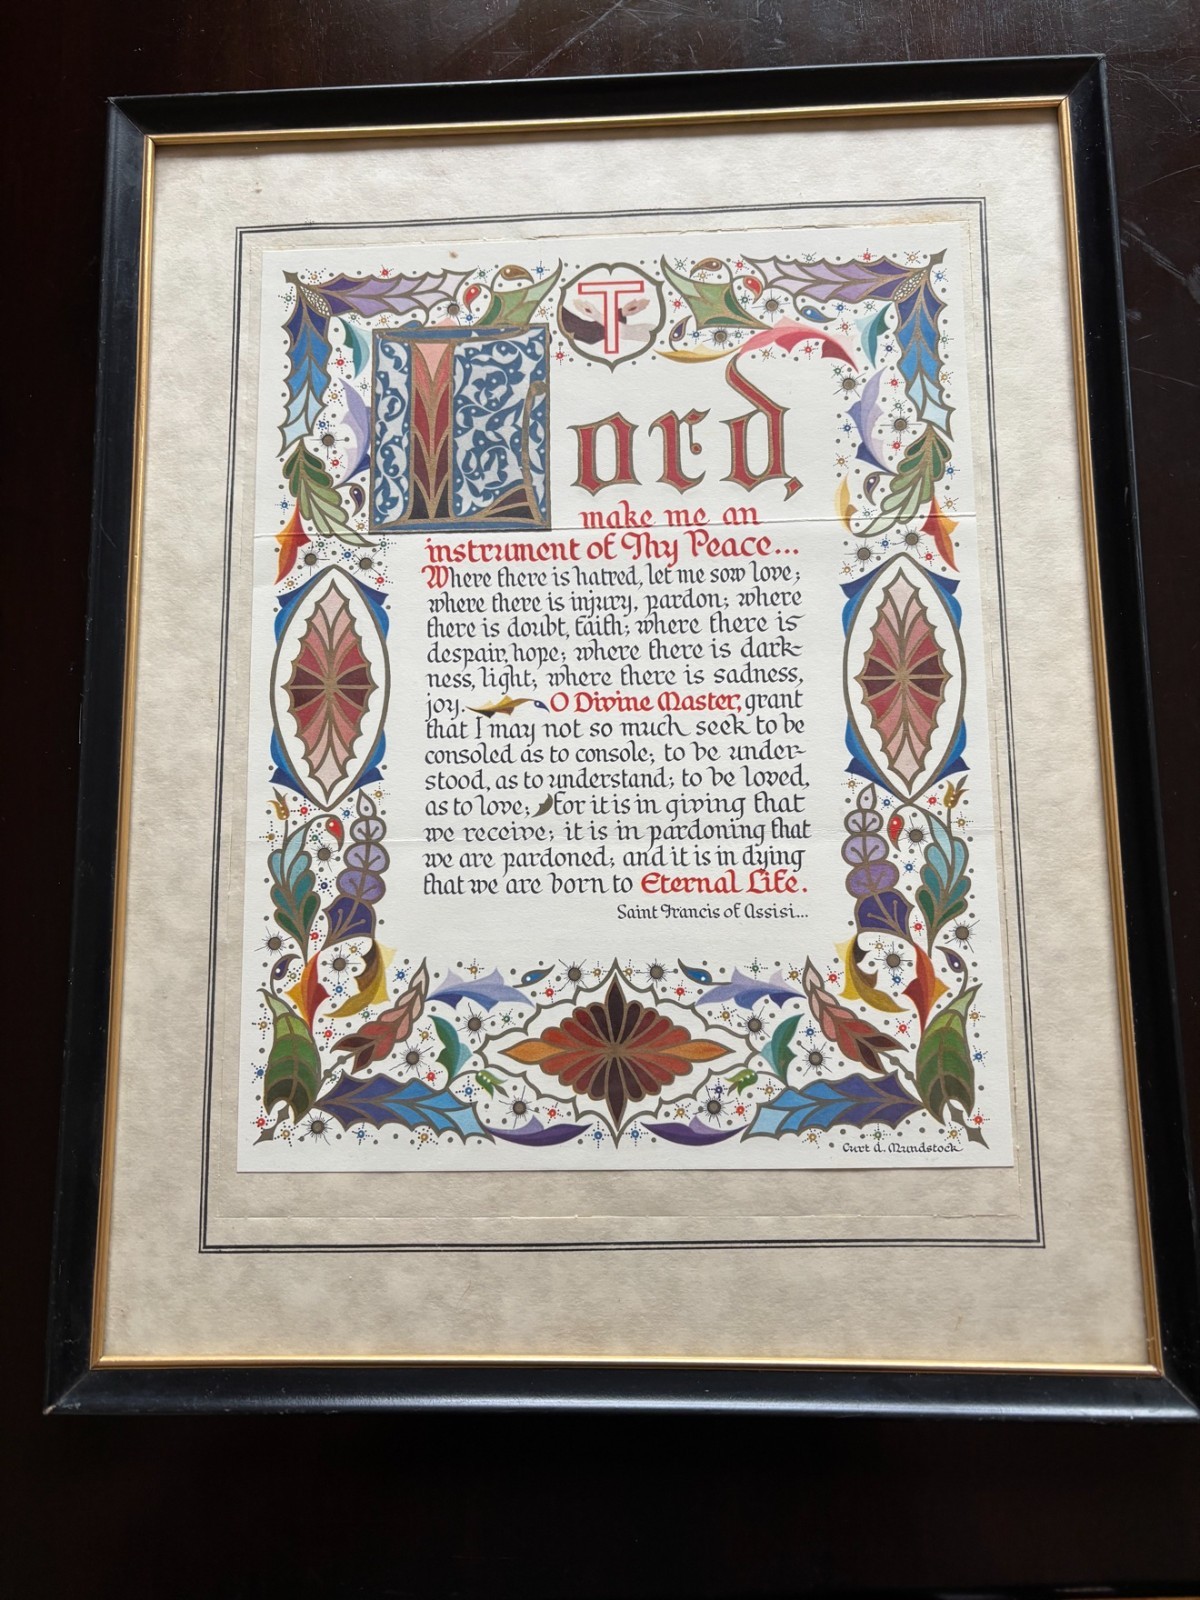 T
Lord,
make me an
instrument of Thy Peace...
Where there is hatred, let me sow love;
where there is injury, pardon; where
there is doubt, faith; where there is
despair, hope; where there is dark-
ness, light; where there is sadness,
joy. O Divine Master, grant
that I may not so much seek to be
consoled as to console; to be under-
stood, as to understand; to be loved,
as to love; for it is in giving that
we receive; it is in pardoning that
we are pardoned; and it is in dying
that we are born to Eternal Life.
Saint Francis of Assisi...
Curt A. Mundstock